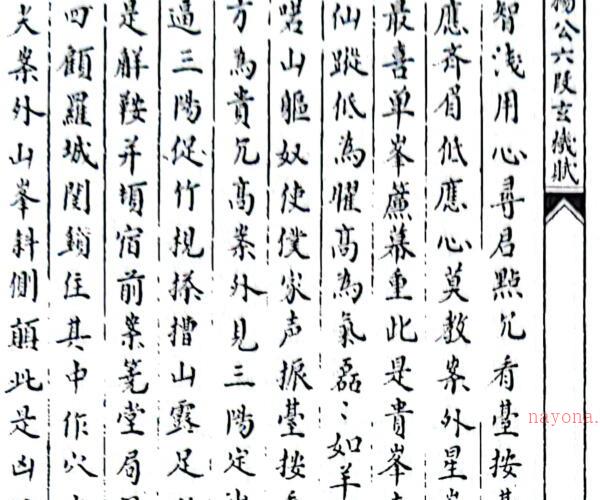 楊公六段玄機賦
智浅用心尋君點穴看䑓按
應齐眉低應心莫教案外星
最喜单峯簾幕重此是貴峯
仙蹤低為曜高為氣磊〻如羊
山驅奴使僕家声振䑓按
方為貴凢高案外見三陽定
逼三陽促竹規搽擋山露足
是觧鞍并頓宿前案笔堂局
四顧羅城関鎖住其中作穴
尖案外山峯斜側顛此是凶
nayona.